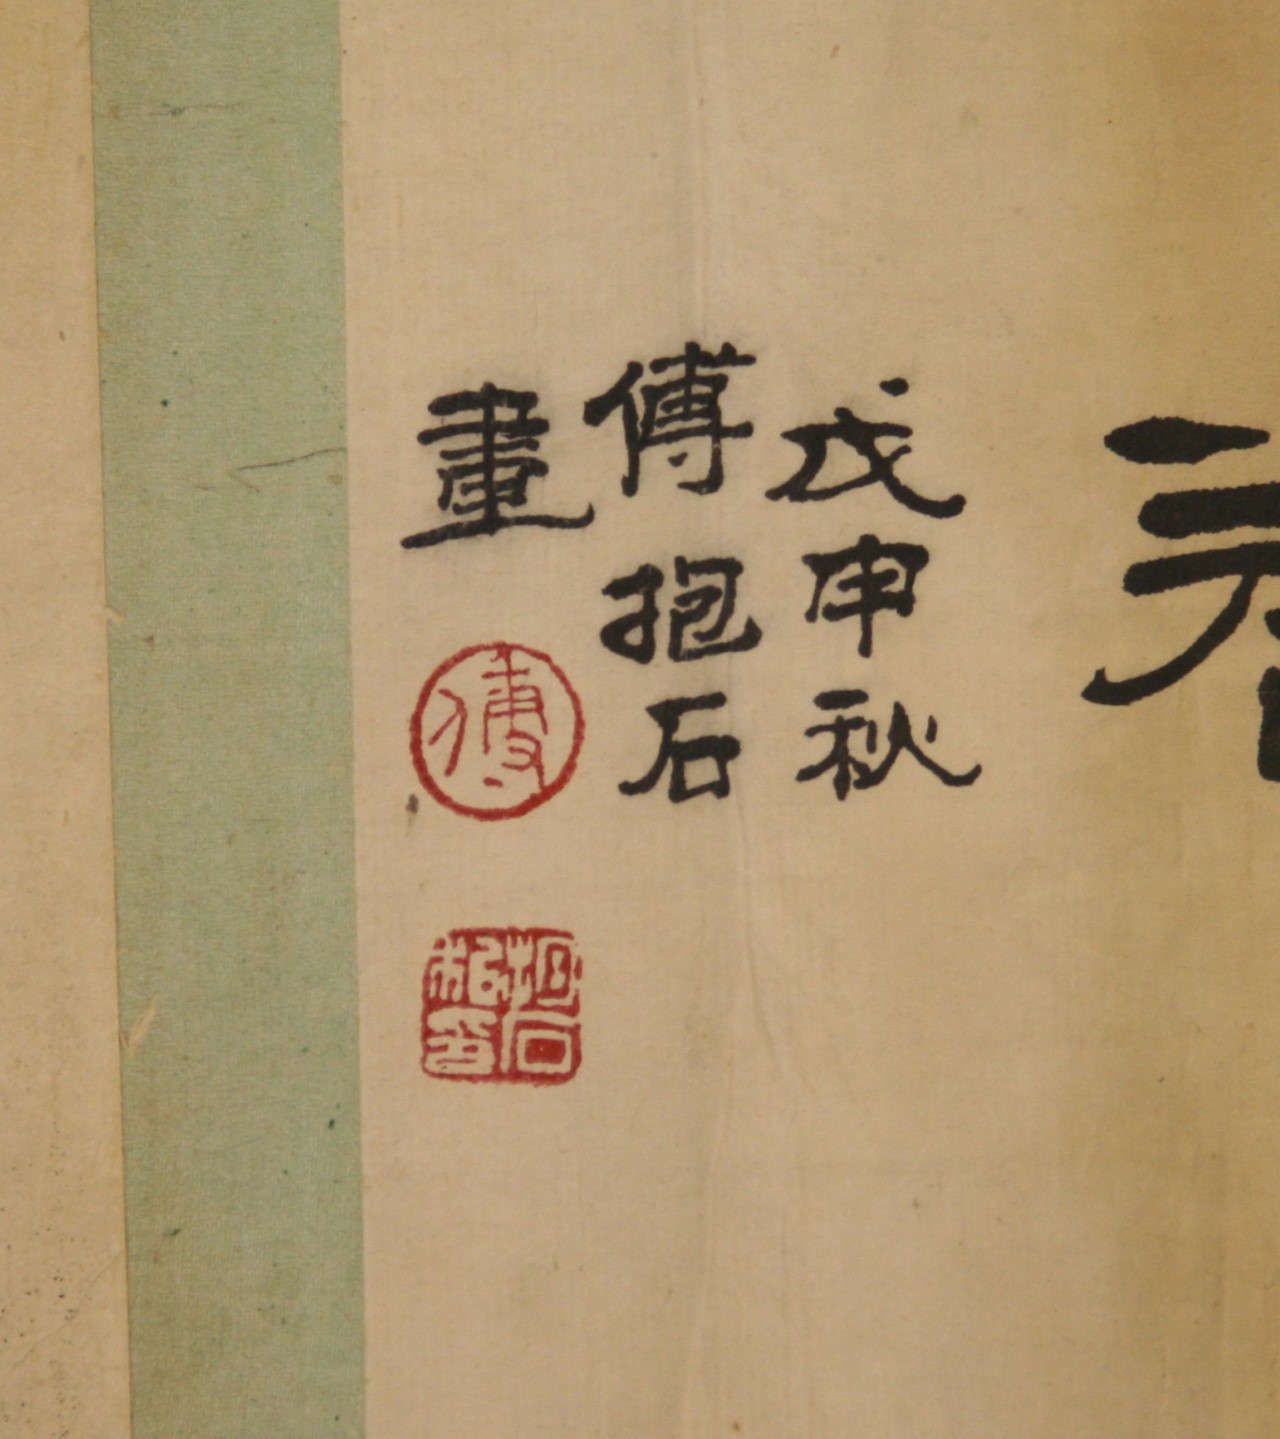 戊申秋
傅抱石
畫
傅
抱石
私印